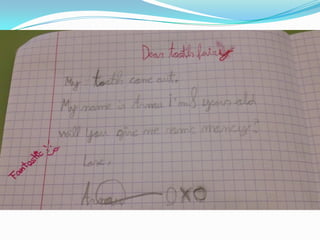 Dear tooth fairy
My tooth out.
My name is I'm 8 years old
will you give me some money?
Love,
OXO
Fantastic